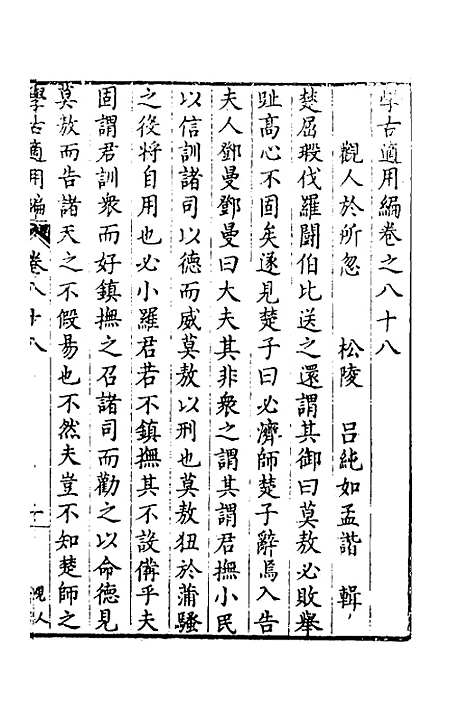 學古適用編卷之八十八
觀人於所忽　松陵　呂純如孟諧　輯
楚屈瑕伐羅鬪伯比送之還謂其御曰莫敖必敗舉
趾高心不固矣遂見楚子曰必濟師楚子辭焉入告
夫人鄧曼鄧曼曰大夫其非衆之謂其謂君撫小民
以信訓諸司以德而威莫敖以刑也莫敖狃於蒲騷
之後將自用也必小羅君若不鎮撫其不設備乎夫
固謂君訓衆而好鎮撫之召諸司而勸之以命德見
莫敖而告諸天之不假易也不然夫豈不知楚師之
學古適用編　卷八十八　一　觀人